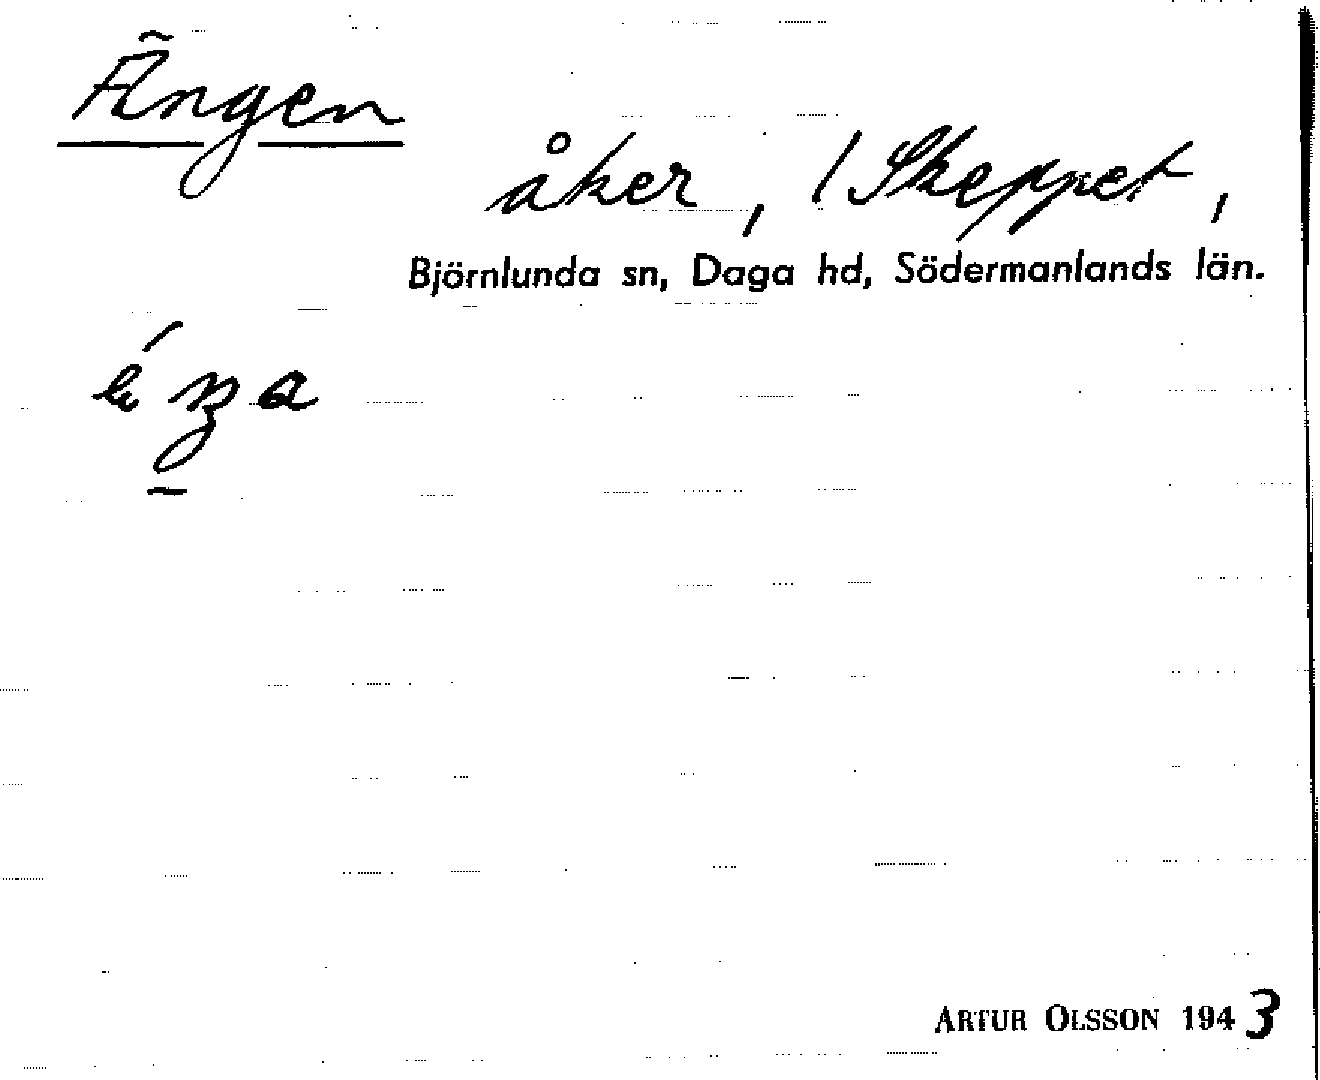 Ängen
åker, 1 Skeppet,
Björnlunda sn, Daga hd, Södermanlands län.
ARTUR OLSSON 1943